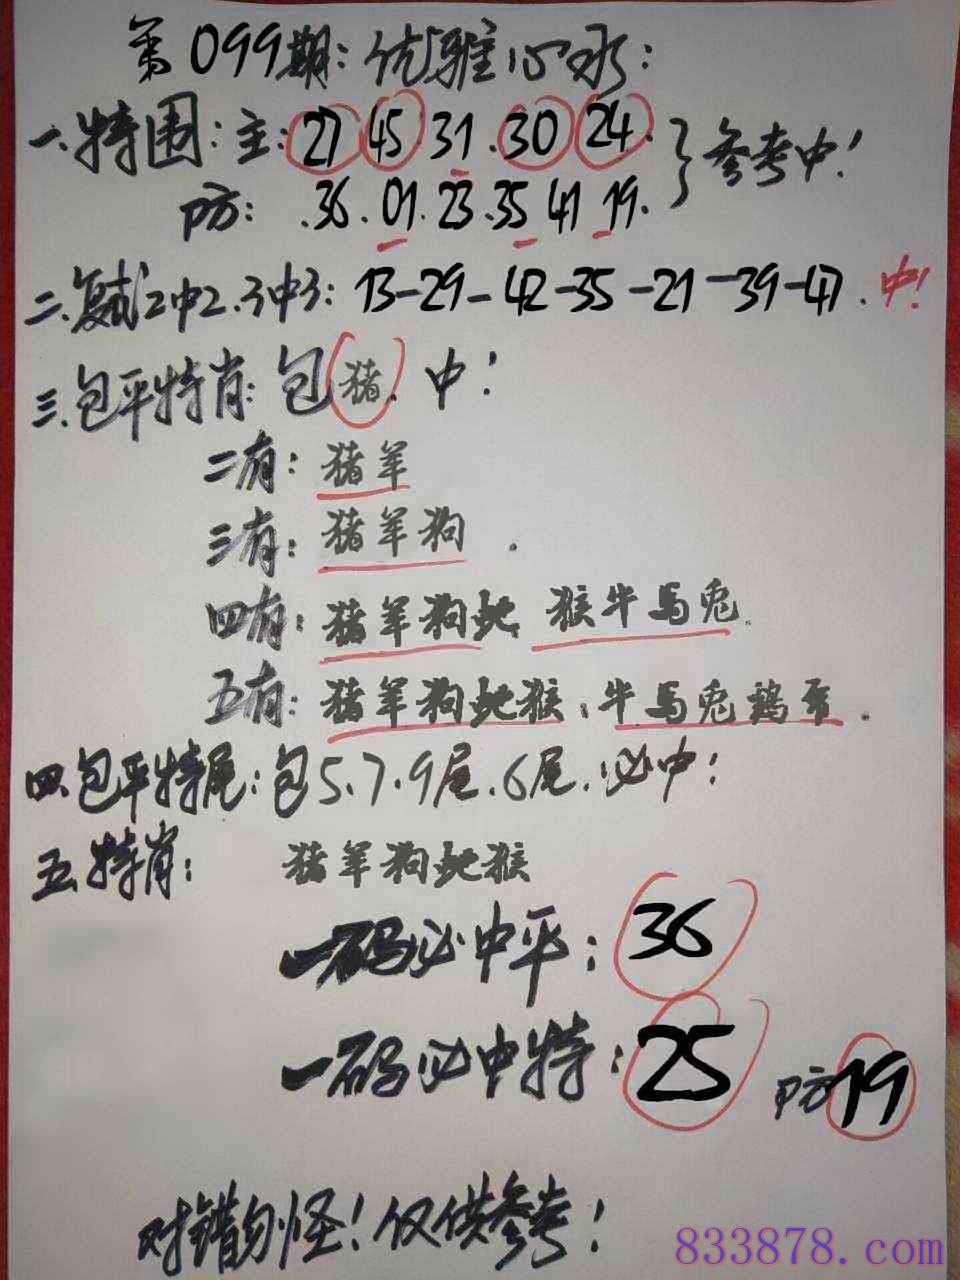 第099期:优雅心水:
一.特围:主:27.45.31.30.24.}参考中!
防:.36.01.23.35 41 19.
二.复式2中2.3中3:13-29-42-35-21-39-47.中!
三.包平特肖:包猪.中!
二有:猪羊
三有:猪羊狗.
四有:猪羊狗蛇 猴牛马兔.
五有:猪羊狗蛇猴;牛马兔鸡.
四.包平特尾:包5.7.9尾.6尾.必中!
五.特肖:猪羊狗蛇猴
一码必中平:36
一码必中特:25 防19
对错勿怪!仅供参考!
833878.com